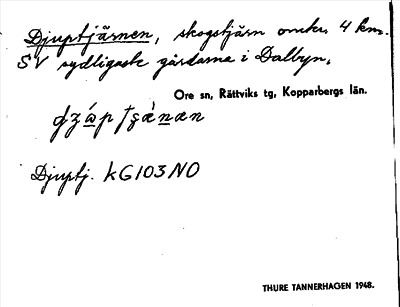 Djuptjärnen, skogstjärn omkr. 4 km.
SV sydligaste gårdarna i Dalbyn.
Ore sn, Rättviks tg, Kopparbergs län.
Djuptj. kG103NO
THURE TANNERHAGEN 1948.